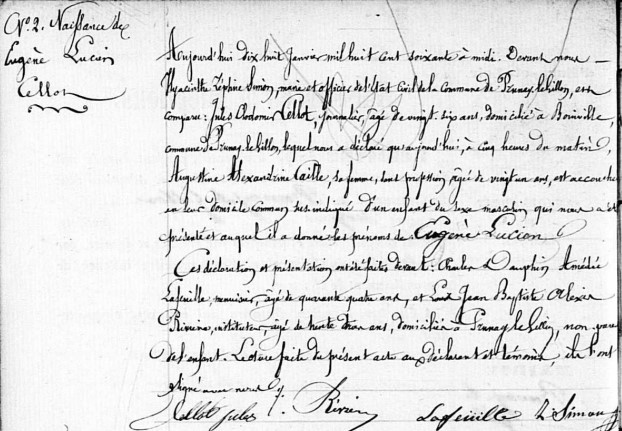 N° 2. Naissance de
Eugène Lucien
Cellot
Aujourd'hui dix huit Janvier mil huit cent soixante à midi. Devant nous
Hyacinthe Zéphire Simon, maire et officier de l'Etat Civil de la Commune de Prunay-le-Gillon, est
comparu : Jules Clodomir Cellot, journalier, âgé de vingt six ans, domicilié à
commune de Prunay-le-Gillon, lequel nous a déclaré qu'aujourd'hui, à cinq heures du matin,
Augustine Alexandrine Caille, sa femme, sans profession, âgée de vingt un ans, est accouchée
en leur domicile commun sus indiqué d'un enfant du sexe masculin qui nous a été
présenté et auquel il a donné les prénoms de Eugène Lucien
Ces déclaration et présentation ont été faites devant : Charles Dauphin Amédée
Lafeuille menuisier, âgé de quarante quatre ans, et Louis Jean Baptiste Alexis
instituteur, âgé de trente ans, domiciliés à Prunay-le-Gillon, non parens
de l'enfant. Lecture faite du présent acte aux déclarant et témoins, ils l'ont
signé avec nous
Cellot jules Lafeuille Simon